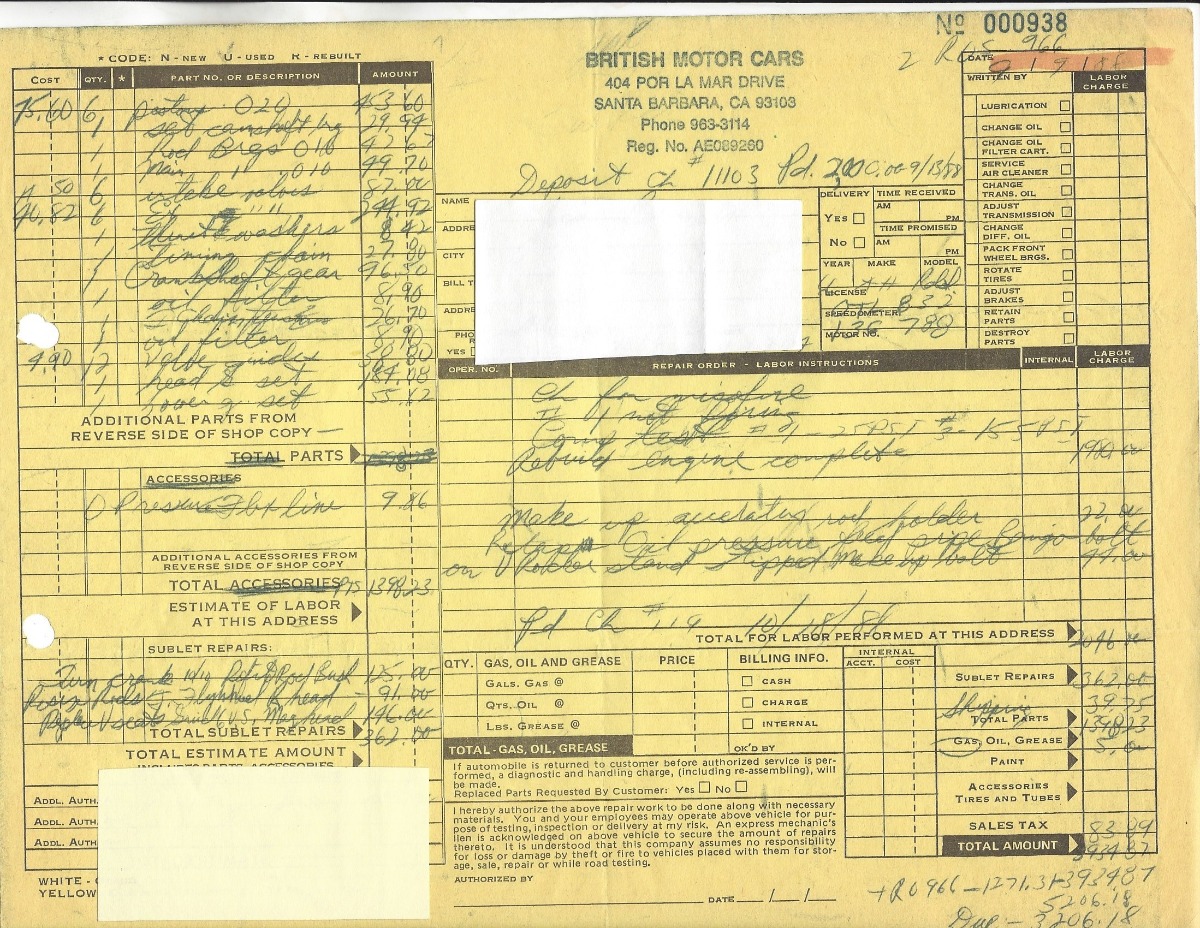 Nº 000938
* CODE: N - NEW U - USED R - REBUILT
COST QTY. * PART NO. OR DESCRIPTION AMOUNT
75.60 6 pistons 020 453.60
1 set camshaft brg 29.94
1 Rod Brgs 010 47.67
1 Main " 010 49.70
14.50 6 intake valves 87.00
40.82 6 " " 244.92
1 thrust washers 8.42
1 timing chain 27.90
1 Crankshaft gear 96.50
1 oil filter 8.90
1 26.70
1 oil filter 8.90
4.90 12 Valve guides 58.80
1 head g set 184.08
1 lower g. set 55.42
ADDITIONAL PARTS FROM
REVERSE SIDE OF SHOP COPY
TOTAL PARTS
ACCESSORIES
Pressure Flex line 9.86
ADDITIONAL ACCESSORIES FROM
REVERSE SIDE OF SHOP COPY
TOTAL ACCESSORIES 1398.23
ESTIMATE OF LABOR
AT THIS ADDRESS
SUBLET REPAIRS:
Turn crank 125.00
Flywheel & head 91.00
146.00
TOTAL SUBLET REPAIRS 362.00
TOTAL ESTIMATE AMOUNT
ADDL. AUTH.
ADDL. AUTH.
ADDL. AUTH.
WHITE -
YELLOW
BRITISH MOTOR CARS
404 POR LA MAR DRIVE
SANTA BARBARA, CA 93103
Phone 963-3114
Reg. No. AE089260
Deposit ch # 11103 Pd. 2000.00 9/13/88
NAME
ADDRE
CITY
BILL T
ADDRE
PHO
YES
DELIVERY
YES
NO
TIME RECEIVED
AM PM
TIME PROMISED
AM PM
YEAR MAKE MODEL
LICENSE
SPEEDOMETER
MOTOR NO.
2 966
DATE
WRITTEN BY LABOR CHARGE
LUBRICATION
CHANGE OIL
CHANGE OIL FILTER CART.
SERVICE AIR CLEANER
CHANGE TRANS. OIL
ADJUST TRANSMISSION
CHANGE DIFF. OIL
PACK FRONT WHEEL BRGS.
ROTATE TIRES
ADJUST BRAKES
RETAIN PARTS
DESTROY PARTS
OPER. NO. REPAIR ORDER - LABOR INSTRUCTIONS INTERNAL LABOR CHARGE
Ch for misfire
# 1 not firing
Comp test #1 25PSI #3-155PSI
Rebuild engine complete 1980.00
Make up accelerator rod holder 22.00
Oil pressure feed pipe banjo bolt
on stand stripped Make up bolt 44.00
Pd Ch # 119 10/18/88
TOTAL FOR LABOR PERFORMED AT THIS ADDRESS 2046.00
QTY. GAS, OIL AND GREASE PRICE
GALS. GAS @
QTS. OIL @
LBS. GREASE @
TOTAL - GAS, OIL, GREASE
BILLING INFO.
CASH
CHARGE
INTERNAL
OK'D BY
INTERNAL
ACCT. COST
SUBLET REPAIRS 362.00
Shipping 39.75
TOTAL PARTS 1398.23
GAS, OIL, GREASE 5.00
PAINT
ACCESSORIES
TIRES AND TUBES
SALES TAX 83.89
TOTAL AMOUNT 3934.87
If automobile is returned to customer before authorized service is per-
formed, a diagnostic and handling charge, (including re-assembling), will
be made.
Replaced Parts Requested By Customer: Yes No
I hereby authorize the above repair work to be done along with necessary
materials. You and your employees may operate above vehicle for pur-
pose of testing, inspection or delivery at my risk. An express mechanic's
lien is acknowledged on above vehicle to secure the amount of repairs
thereto. It is understood that this company assumes no responsibility
for loss or damage by theft or fire to vehicles placed with them for stor-
age, sale, repair or while road testing.
AUTHORIZED BY
DATE / /
+RO966-1271.31+3934.87
5206.18
Due - 3206.18